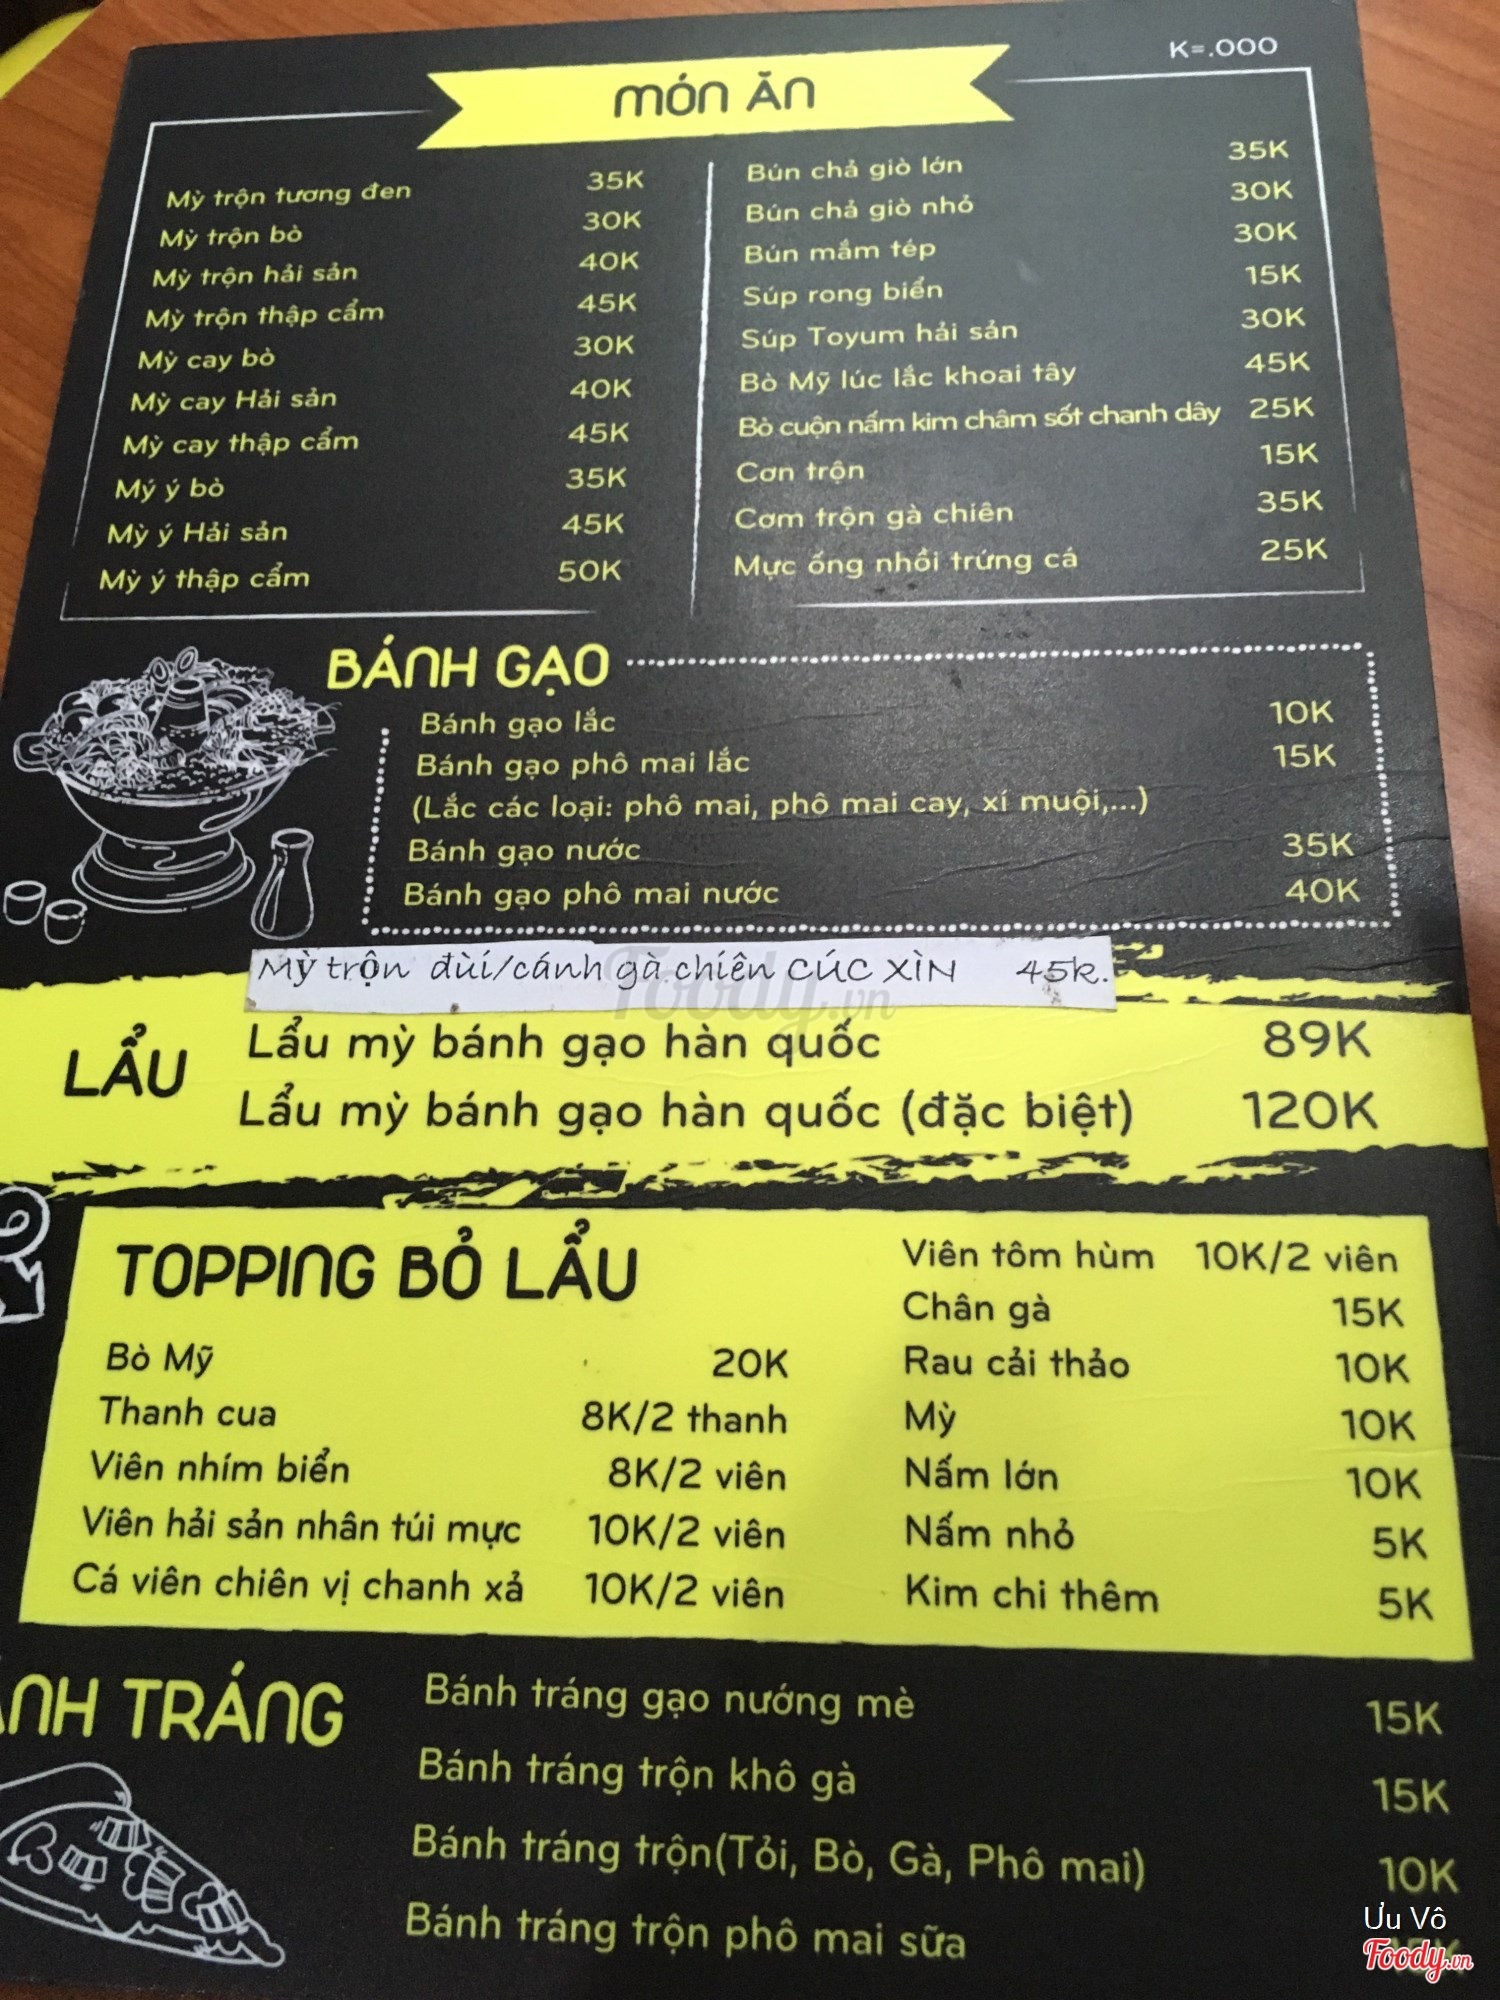 K=.000
MÓN ĂN
Mỳ trộn tương đen 35K
Mỳ trộn bò 30K
Mỳ trộn hải sản 40K
Mỳ trộn thập cẩm 45K
Mỳ cay bò 30K
Mỳ cay Hải sản 40K
Mỳ cay thập cẩm 45K
Mý ý bò 35K
Mỳ ý Hải sản 45K
Mỳ ý thập cẩm 50K
Bún chả giò lớn 35K
Bún chả giò nhỏ 30K
Bún mắm tép 30K
Súp rong biển 15K
Súp Toyum hải sản 30K
Bò Mỹ lúc lắc khoai tây 45K
Bò cuộn nấm kim châm sốt chanh dây 25K
Cơn trộn 15K
Cơm trộn gà chiên 35K
Mực ống nhồi trứng cá 25K
BÁNH GẠO
Bánh gạo lắc 10K
Bánh gạo phô mai lắc 15K
(Lắc các loại: phô mai, phô mai cay, xí muội,...)
Bánh gạo nước 35K
Bánh gạo phô mai nước 40K
Mỳ trộn đùi/cánh gà chiên CÚC XÌN 45k.
Foody.vn
LẨU
Lẩu mỳ bánh gạo hàn quốc 89K
Lẩu mỳ bánh gạo hàn quốc (đặc biệt) 120K
TOPPING BỎ LẨU
Bò Mỹ 20K
Thanh cua 8K/2 thanh
Viên nhím biển 8K/2 viên
Viên hải sản nhân túi mực 10K/2 viên
Cá viên chiên vị chanh xả 10K/2 viên
Viên tôm hùm 10K/2 viên
Chân gà 15K
Rau cải thảo 10K
Mỳ 10K
Nấm lớn 10K
Nấm nhỏ 5K
Kim chi thêm 5K
ÁNH TRÁNG
Bánh tráng gạo nướng mè 15K
Bánh tráng trộn khô gà 15K
Bánh tráng trộn(Tỏi, Bò, Gà, Phô mai) 10K
Bánh tráng trộn phô mai sữa 15K
Ưu Vô
Foody.vn